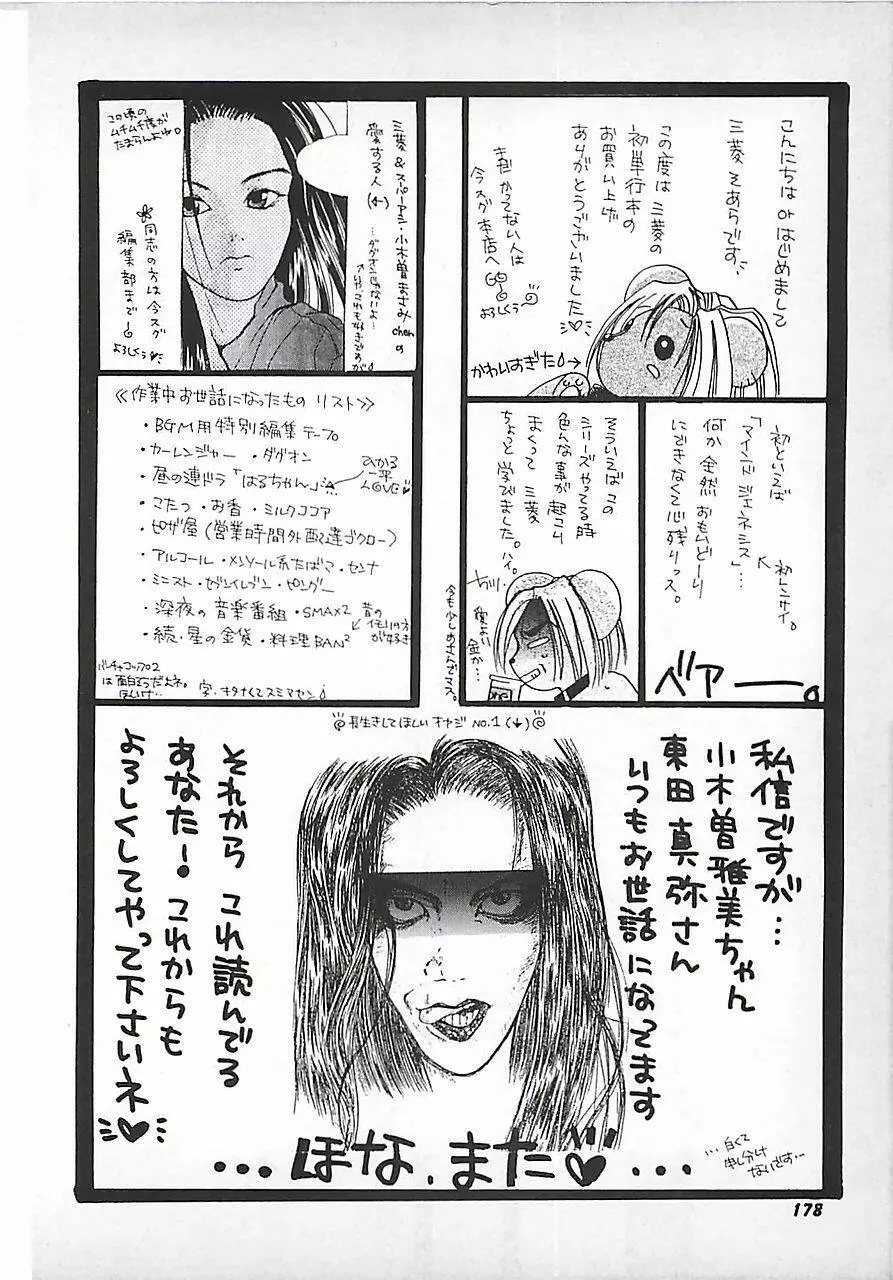 こんにちは or はじめまして
三菱 そあらです
この度は 三菱の
初単行本の
お買い上げ
ありがとうございました♡
まだ かってない人は
今スグ 本店へ GO
よろしくぅ
かわいすぎた
三菱 & スーパーアシ・小木曽 まさみ chanの
愛する人 (←)
… ダグオンじゃないよ…
この頃の
ムチムチ度が
たまらんよね。
同志の方は 今スグ
編集部まで
よろしくぅ♡
初といえば
「マインド ジェネシス」…
初レンサイ。
何か 全然 おもいどーり
にできなくて 心残りっス。
ベアー。
そういえば この
シリーズやってる時
色んな事が 起こり
まくって 三菱
ちょっと 学びました。ハイ。
愛より
金か…
≪作業中 お世話になったもの リスト≫
・BGM用特別編集テープ
・カーレンジャー ・ダグオン
・昼の連ドラ「はるちゃん」
ひかる
一平
LOVE♡
・こたつ・お香・ミルクココア
・ピザ屋(営業時間外配達ゴクロー)
・アルコール・メンソール系たばこ・センナ
・ミニスト・セブンイレブン・ピングー
・深夜の音楽番組・SMAX2
昔の
イモリの方
が好き
・続・星の金貨・料理BAN²
バーチャコップ2
は面白そうだよネ。
字・キタナくてスミマセン
長生きしてほしい オヤジ NO.1 (↓)
私信ですが…
小木曽雅美ちゃん
東田真弥さん
いつもお世話になってます
それから これ読んでる
あなた! これからも
よろしくしてやって下さいネ♡
…ほな、また♡…
…白くて
申し分け
ないです…
178